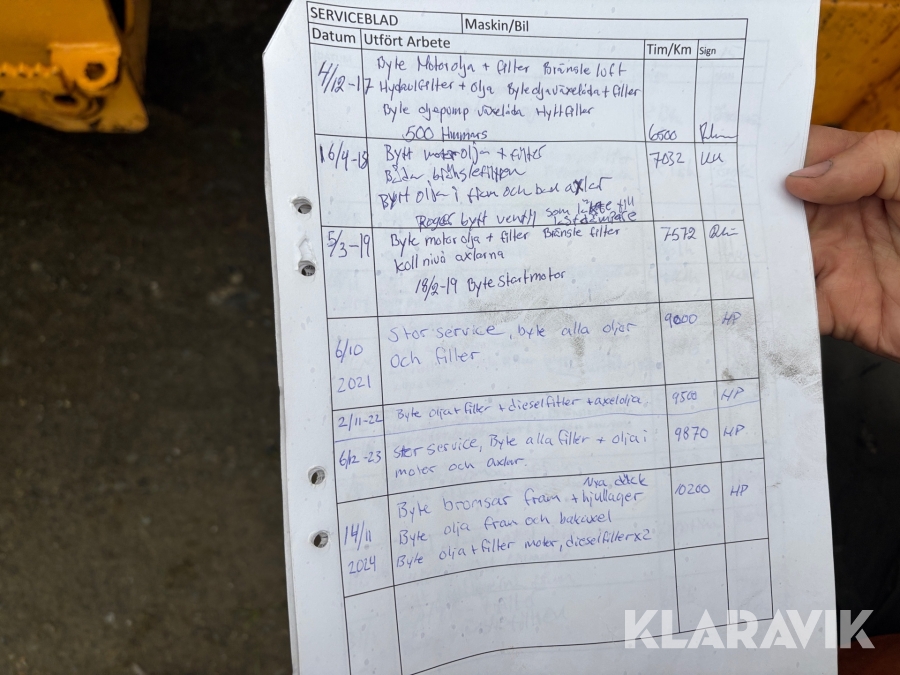 SERVICEBLAD Maskin/Bil
Datum Utfört Arbete Tim/Km Sign
4/12-17 Byte Motorolja + filter Bränsle luft
Hydraulfilter + olja Byte olja växellåda + filter
Byte oljepump växellåda Hyttfilter
500 Himmars 6500
16/4-18 Bytt motorolja + filter 7032
Båda bränslefiltren
Bytt olja i fram och bak axlar
Roger bytt ventil som läckte till
5/3-19 Byte motorolja + filter Bränsle filter 7572
Koll nivå axlarna
18/2-19 Byte Startmotor
6/10 2021 Stor service, byte alla oljor 9000 HP
och filter
2/11-22 Byte olja + filter + dieselfilter + axelolja. 9500 HP
6/12-23 Stor service, Byte alla filter + olja i 9870 HP
motor och axlar.
14/11 2024 Byte bromsar fram + hjullager Nya däck 10200 HP
Byte olja fram och bakaxel
Byte olja + filter motor, dieselfilter x2
KLARAVIK